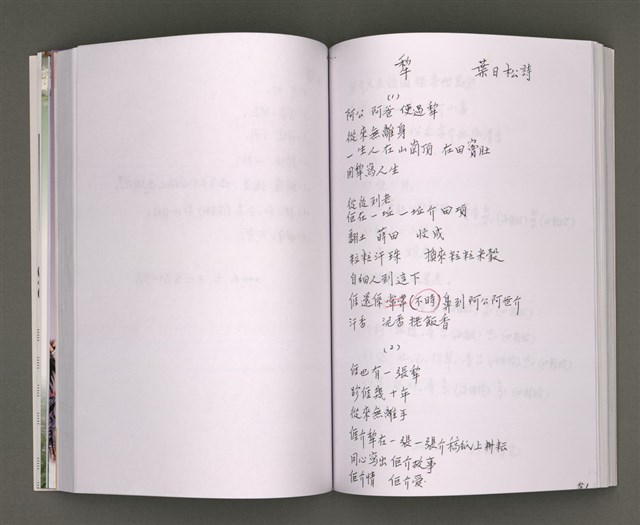 犂 葉日松詩
(1)
阿公 阿爸 使過犂
從來無離身
一生人在山崗頂 在田窩肚
用犂寫人生
從後到老
佢在一坵一坵介田項
翻土 蒔田 收成
粒粒汗珠 換來粒粒米穀
自細人到這下
𠊎還係(不時)鼻到阿公阿爸介
汗香 泥香撈飯香
(2)
𠊎也有一張犂
跈𠊎幾十年
從來無離手
𠊎介犂在一張一張介稿紙上耕耘
用心寫出𠊎介故事
𠊎介情 𠊎介愛